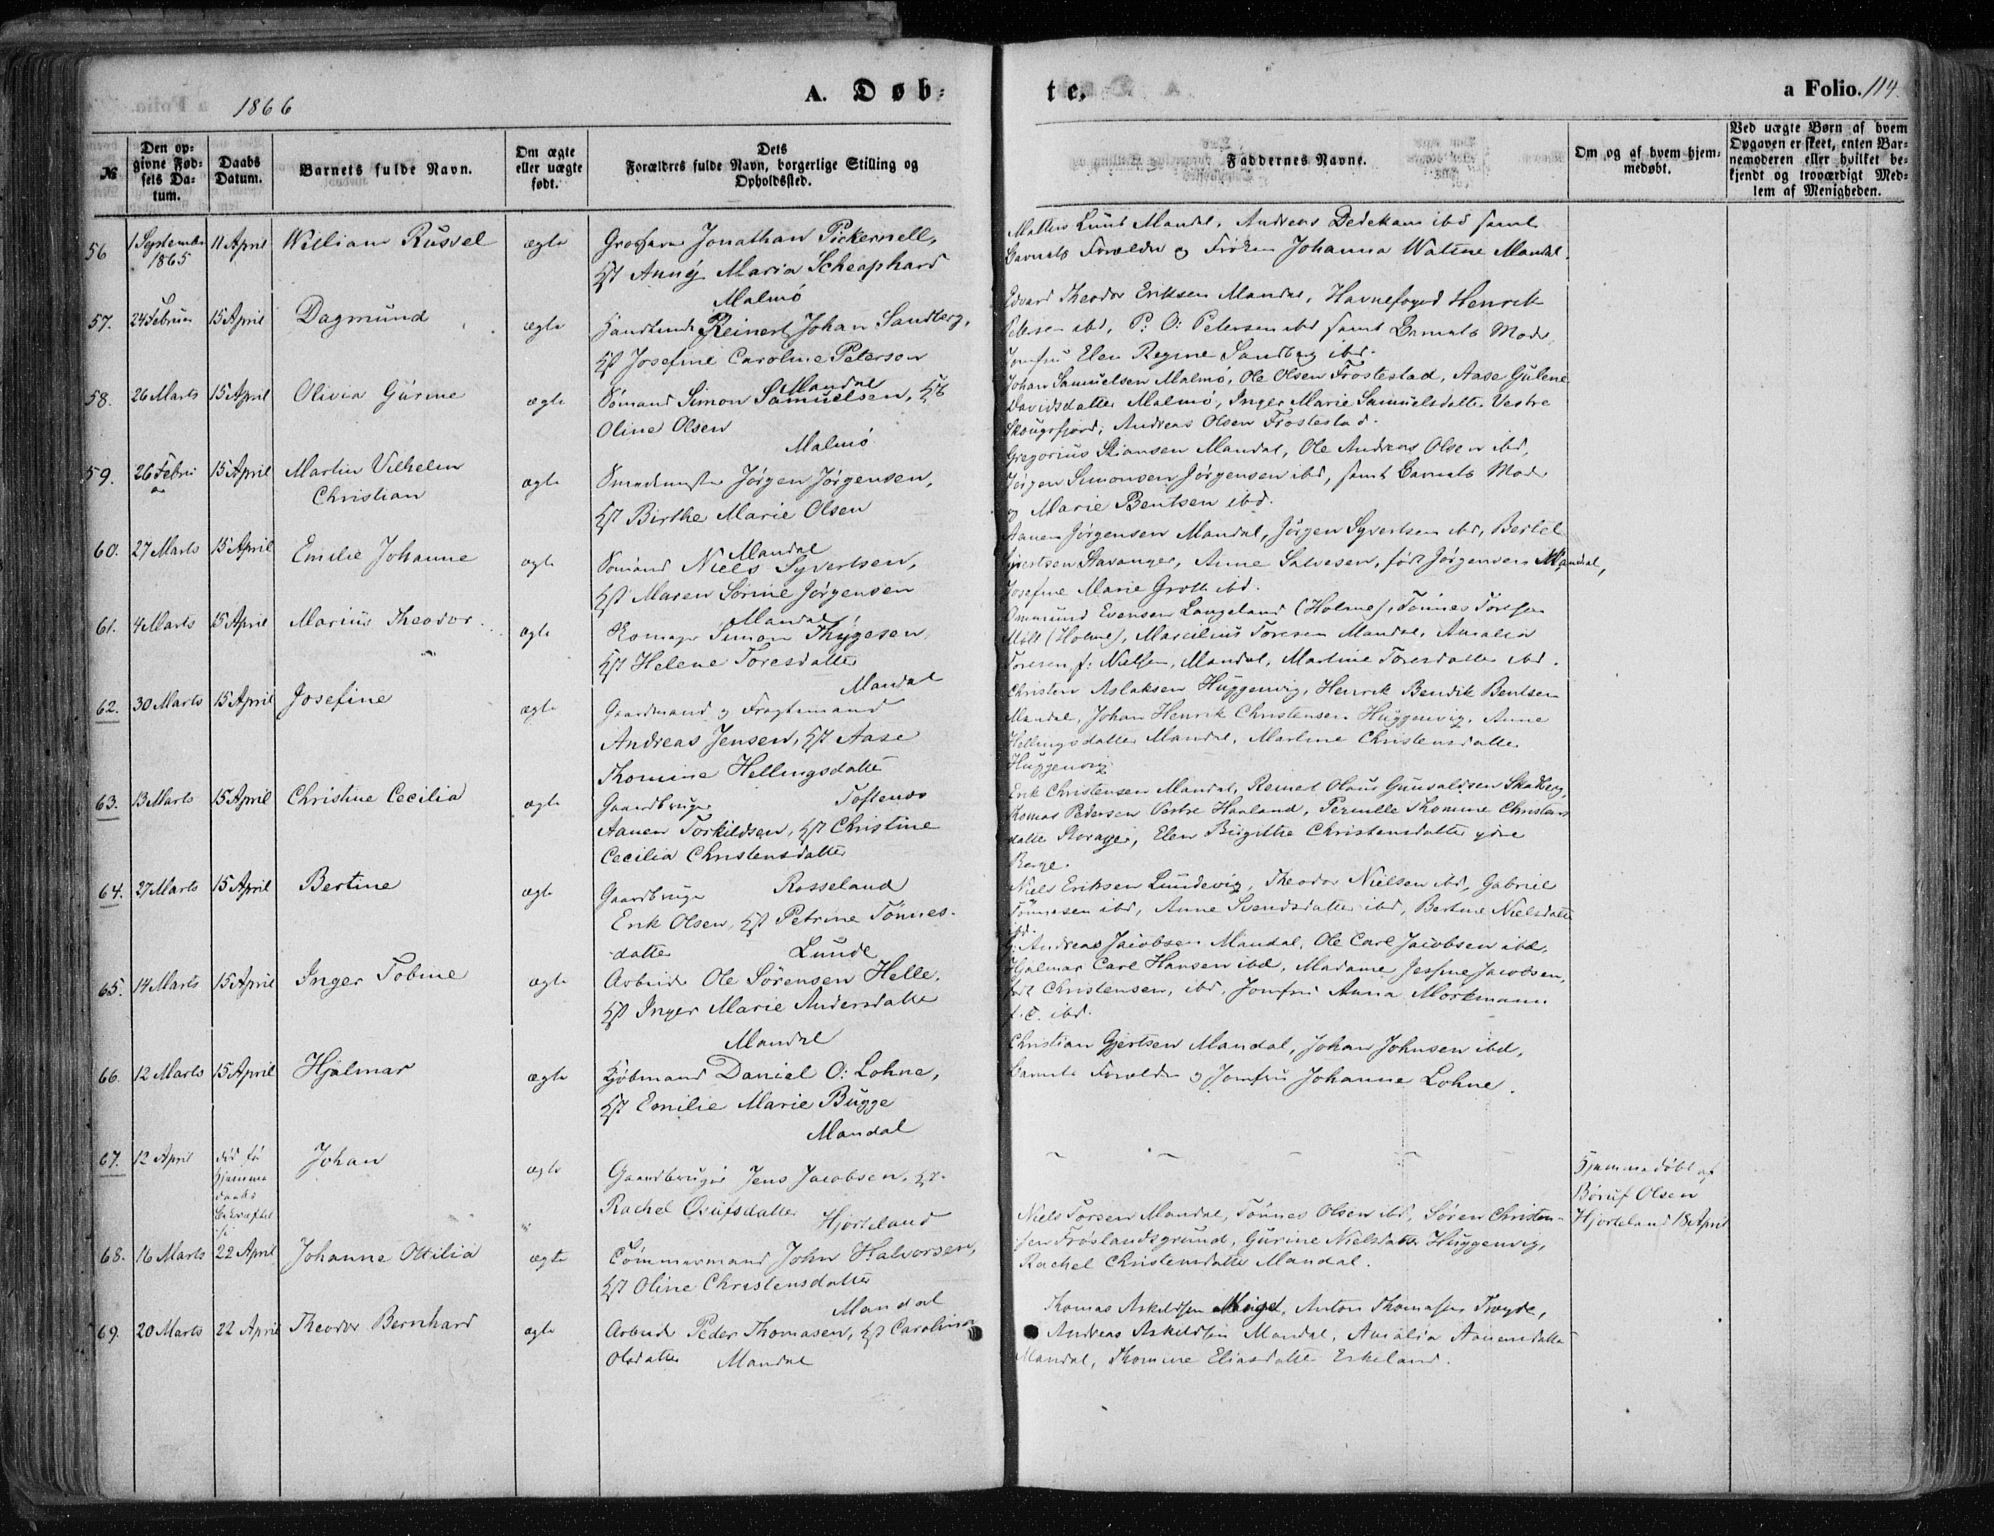 1866
A. Døb-
te.
a Folio. 114.
№
Den op-
givne Fød-
sels Da-
tum.
Daabs
Datum.
Barnets fulde Navn.
Om ægte
eller uægte
født.
Dets
Forældres fulde Navn, borgerlige Stilling og
Opholdssted.
Faddernes Navne.
Om og af hvem hjem-
medøbt.
Ved uægte Børn af hvem
Opgaven er skeet, enten Bar-
nemoderen eller hvilket be-
kjendt og troværdigt Med-
lem af Menigheden.
56 1 September 11 April William Russel ægte Jonathan Pickernell,
1865
Hst Anny Maria Scheaphard
Malmö
Lund Mandal, Andreas Dedekam ibd samt
Barnets Forældre og Frøken Johanna Watne Mandal.
57. 24 Februar 15 April Dagmund ægte Reinert Johan Sandberg,
Hst Josefine Caroline Peterson
Mandal
Edvard Theodor Eriksen Mandal, Havnefoged Henrik
Petersen ibd, P. O. Petersen ibd samt Barnets Moder
Jomfru Elen Regine Sandberg ibd.
58. 26 Marts 15 April Olivia Gurine ægte Sømand Simon Samuelsen, Hst
Oline Olsen
Malmö
Johan Samuelsen Malmö, Ole Olsen Frostestad, Aase Gulene
Davidsdatter Malmö, Inger Marie Samuelsdatter Vestre
Skougsfjord, Andreas Olsen Frostestad.
59. 26 Febru 15 April Martin Vilhelm ægte Jørgen Jørgensen,
ar
Christian
Hst Birthe Marie Olsen
Mandal
Gregorius Mandal, Ole Andreas Olsen ibd,
Jørgen Simonsen Jørgensen ibd, samt Barnets Moder
og Marie Bentsen ibd.
60. 27 Marts 15 April Emilie Johanne ægte Sømand Niels Syvertsen,
Hst Maren Sörine Jørgensen
Mandal
Aanen Jørgensen Mandal, Jörgen Syvertsen ibd, Bertel
Syvertsen Stavanger, Anne Salvesen, født Jørgensen Mandal,
Josefine Marie Groth ibd.
61. 4 Marts 15 April Marius Theodor. ægte Simon Thygesen,
Hst Helene Toresdatter
Mandal
Ommund Esensen Langeland (Holme), Tönnes Toresen
(Holme), Marcilius Toresen Mandal, Amalia
Toresen, f: Nielsen, Mandal, Martine Toresdatter ibd.
62. 30 Marts 15 April Josefine ægte Gaardmand og Fragtemand
Andreas Jensen, Hst Aase
Thomine Hellingsdatter
Toftenes
Christen Aslaksen Huggenvig, Henrik Bendik Bentsen
Mandal, Johan Henrik Christensen Huggenvig, Anne
Hellingsdatter Mandal, Martine Christensdatter
Huggenvig
63. 13 Marts 15 April Christine Cecilia ægte Gaardbruger
Aanen Torkildsen, Hst Christine
Cecilia Christensdatter
Rosseland
Erik Christensen Mandal, Reinert Olaus Gunvaldsen Skatberg,
Thomas Pedersen Vestre Haaland, Pernille Thomine Christens
datter, Elen Birgithe Christensdatter ydre
Berge.
64. 27 Marts 15 April Bertine ægte Gaardbruger
Erik Olsen, Hst Petrine Tönnes-
datter Lunde
Niels Eriksen Lundevig, Theodor Nielsen ibd, Gabriel
Tönnesen ibd, Anne Svendsdatter ibd, Bertine Nielsdatter
ibd.
65. 14 Marts 15 April Inger Tobine ægte Arbeider Ole Sørensen Helle.
Hst Inger Marie Andersdatter
Mandal
Andreas Jacobsen Mandal, Ole Carl Jacobsen ibd,
Hjalmar Carl Hansen ibd, Madame Jesfine Jacobsen,
født Christensen, ibd, Jomfru Anna Morkmann
ibd.
66. 12 Marts 15 April Hjalmar ægte Kjøbmand Daniel O: Lohne,
Hst Emilie Marie Bugge
Mandal
Christian Gjertsen Mandal, Johan Johnsen ibd,
Barnets Forældre og Jomfru Johanne Lohne.
67. 12 April død før Johan ægte Gaardbruger Jens Jacobsen, Hst.
Hjemme
daabs
Bekræftel
se
Rachel Osufsdatter
Hjorteland
Hjemmedøbt af
Böruf Olsen
Hjorteland 18 April
68. 16 Marts 22 April Johanne Otilia ægte Tömmermand John Halvorsen,
Hst Oline Christensdatter
Mandal
Niels Torsen Mandal, Tönnes Olsen ibd, Sören Christen-
sen Frøslandsgrund, Gurine Nielsdatter Huggenvig,
Rachel Christensdatter Mandal.
69. 20 Marts 22 April Theodor Bernhard ægte Arbeider Peder Thomasen, Hst Carolina
Olsdatter Mandal
Thomas Askildsen, Anton Thomassen Trøyde,
Andreas Askildsen Mandal, Amalia Aanensdatter
Mandal, Thomine Eliasdatter Eskeland.